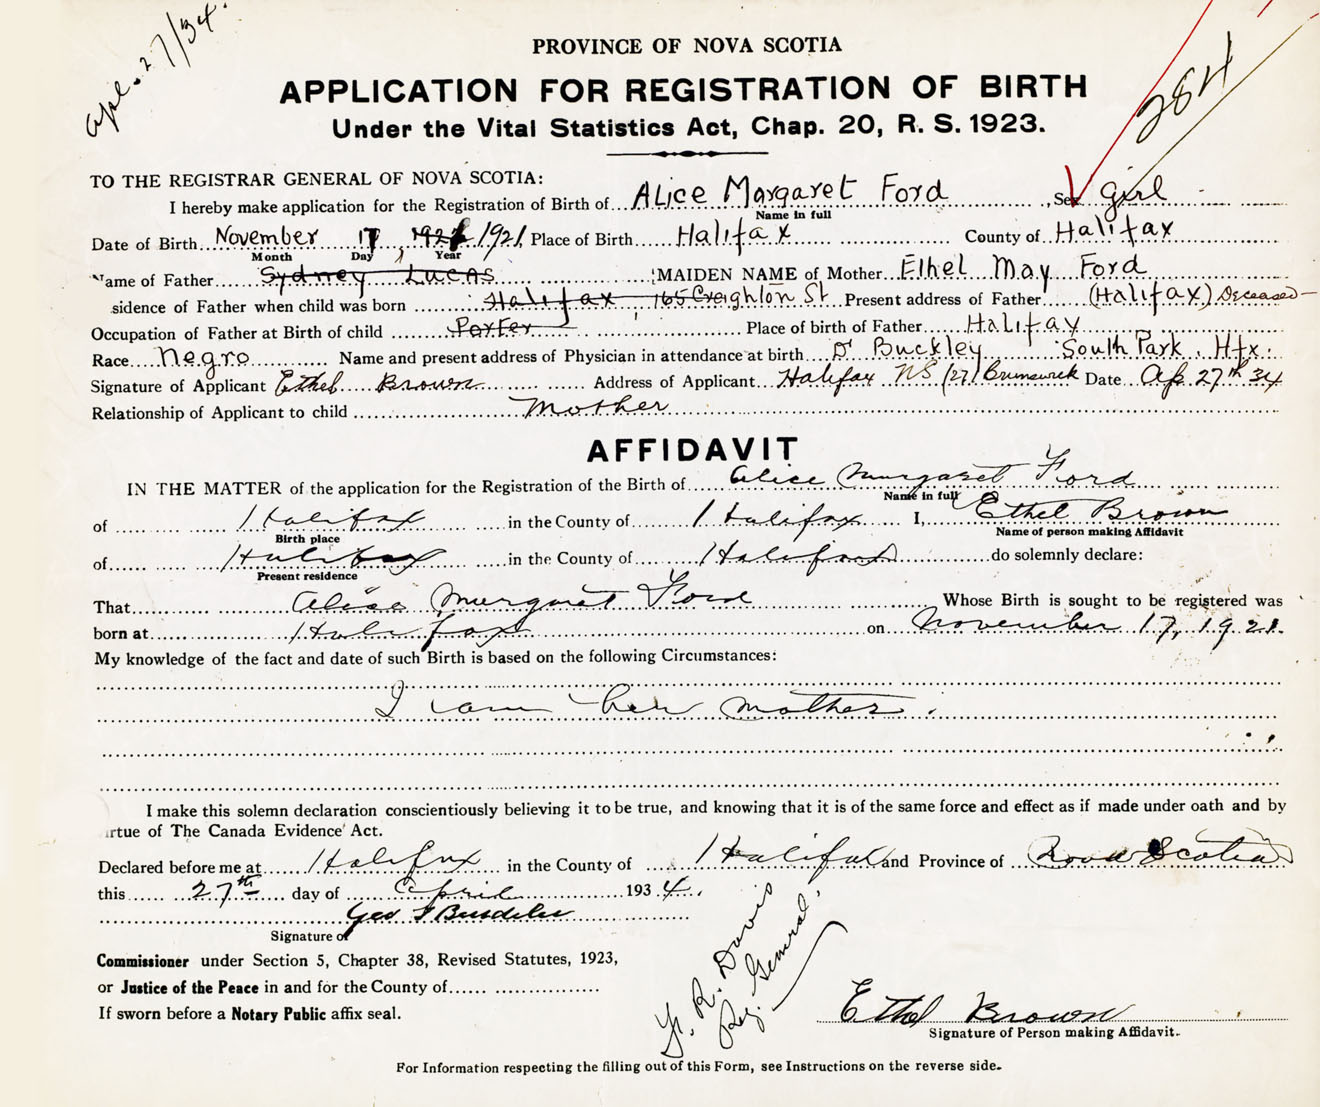 Apl. 27/34.
284
PROVINCE OF NOVA SCOTIA
APPLICATION FOR REGISTRATION OF BIRTH
Under the Vital Statistics Act, Chap. 20, R. S. 1923.
TO THE REGISTRAR GENERAL OF NOVA SCOTIA:
I hereby make application for the Registration of Birth of Alice Margaret Ford Sex Girl
Name in full
Date of Birth November 17, 1921 Place of Birth Halifax County of Halifax
Month Day Year
Name of Father Sydney Lucas MAIDEN NAME of Mother Ethel May Ford
sidence of Father when child was born Halifax 165 Creighton St. Present address of Father (Halifax) Deceased
Occupation of Father at Birth of child Porter Place of birth of Father Halifax
Race Negro Name and present address of Physician in attendance at birth Dr Buckley South Park, Hfx.
Signature of Applicant Ethel Brown Address of Applicant Halifax NS (27) Brunswick Date Ap. 27th 34
Relationship of Applicant to child Mother
AFFIDAVIT
IN THE MATTER of the application for the Registration of the Birth of Alice Margaret Ford
Name in full
of Halifax in the County of Halifax I, Ethel Brown
Birth place Name of person making Affidavit
of Halifax in the County of Halifax do solemnly declare:
Present residence
That Alice Margaret Ford Whose Birth is sought to be registered was
born at Halifax on November 17, 1921.
My knowledge of the fact and date of such Birth is based on the following Circumstances:
I am her mother.
I make this solemn declaration conscientiously believing it to be true, and knowing that it is of the same force and effect as if made under oath and by
irtue of The Canada Evidence Act.
Declared before me at Halifax in the County of Halifax and Province of Nova Scotia
this 27th day of April 1934.
Geo
Signature of
Commissioner under Section 5, Chapter 38, Revised Statutes, 1923,
or Justice of the Peace in and for the County of
If sworn before a Notary Public affix seal.
R. Davis
Reg. General.
Ethel Brown
Signature of Person making Affidavit.
For Information respecting the filling out of this Form, see Instructions on the reverse side.